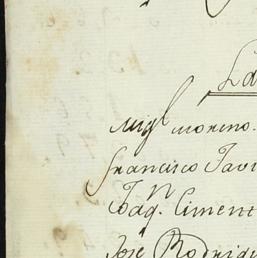 La
Migl moreno.
Francisco Javi
Joaqn. Ciment
José Rodrigu